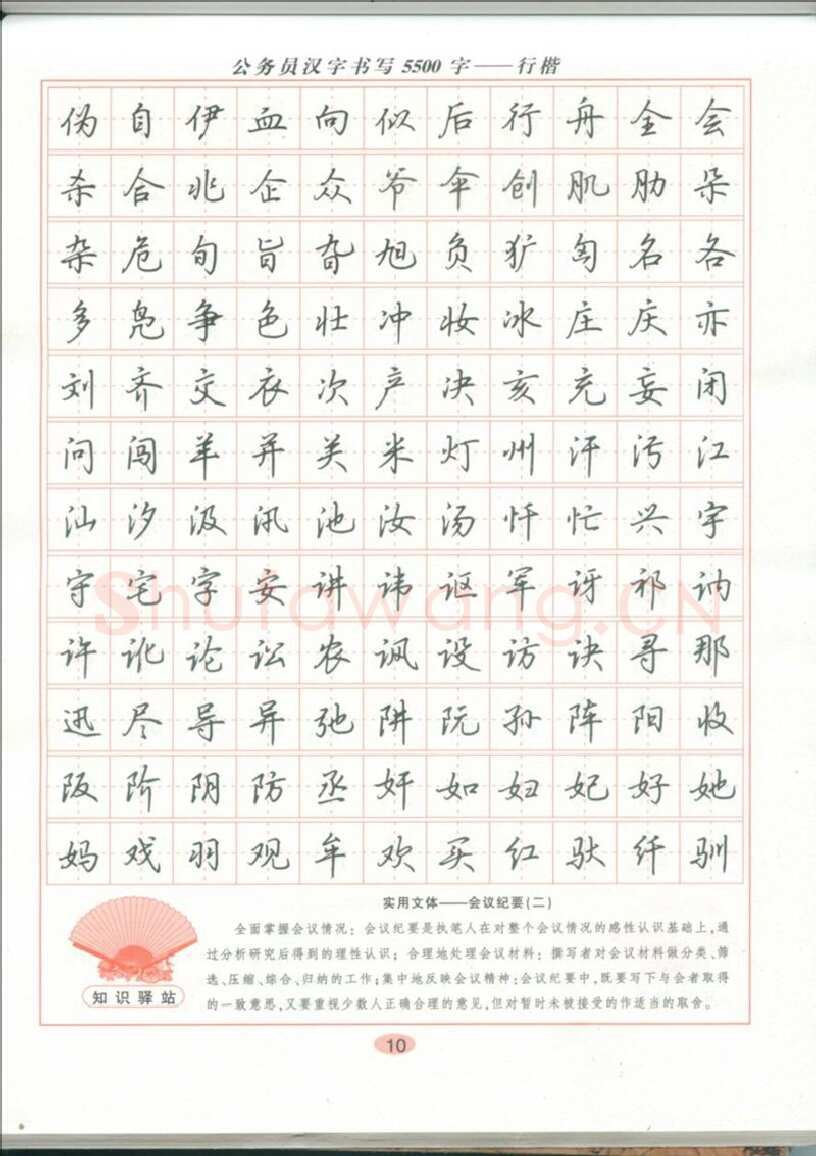 公务员汉字书写5500字——行楷
伪自伊血向似后行舟全会
杀合兆企众爷伞创肌肋朵
杂危旬旨旮旭负犷匈名各
多凫争色壮冲妆冰庄庆亦
刘齐交衣次产决亥充妄闭
问闯羊并关米灯州汗污江
汕汐汲汛池汝汤忏忙兴宇
守宅字安讲讳讴军讶祁讷
许讹论讼农讽设访诀寻那
迅尽导异弛阱阮孙阵阳收
阪阶阴防丞奸如妇妃好她
妈戏羽观牟欢买红驮纤驯
Shufawang.CN
实用文体——会议纪要(二)
全面掌握会议情况：会议纪要是执笔人在对整个会议情况的感性认识基础上,通
过分析研究后得到的理性认识；合理地处理会议材料：撰写者对会议材料做分类、筛
选、压缩、综合、归纳的工作;集中地反映会议精神:会议纪要中,既要写下与会者取得
的一致意思,又要重视少数人正确合理的意见,但对暂时未被接受的作适当的取舍。
知识驿站
10